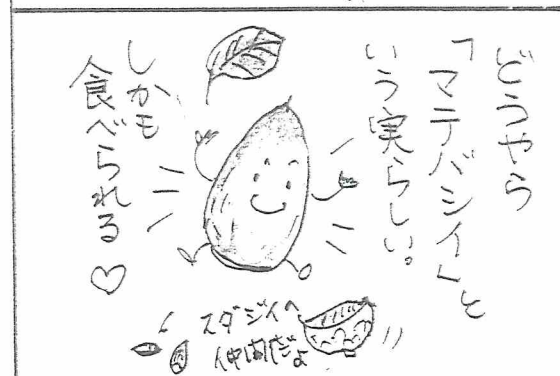 どうやら
「マテバシイ」と
いう実らしい。
しかも
食べられる♡
スダジイへ
仲間だよ